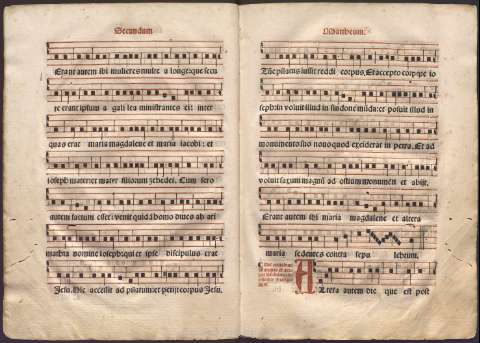 Secundum
Erant autem ibi mulieres multe a longe que secu
te erant iesum a galilea ministrantes ei: inter
quas erat maria magdalene et maria iacobi: et
ioseph mater et mater filiorum zebedei. Cum sero
autem factum esset: venit quidā homo diues ab ari
mathia nomine ioseph: qui et ipse discipulus erat
Jesu. Hic accessit ad pilatum: et petijt corpus Jesu.
Mattheum.
Tūc pilatus iussit reddi corpus. Et accepto corpore io
seph inuoluit illud in sindone mūda: et posuit illud in
monumento suo nouo quod exciderat in petra. Et ad
voluit saxum magnū ad ostium monumēti et abijt.
Erant autem ibi maria magdalene et altera
maria sedentes contra sepulchrum.
Altera autem die que est post